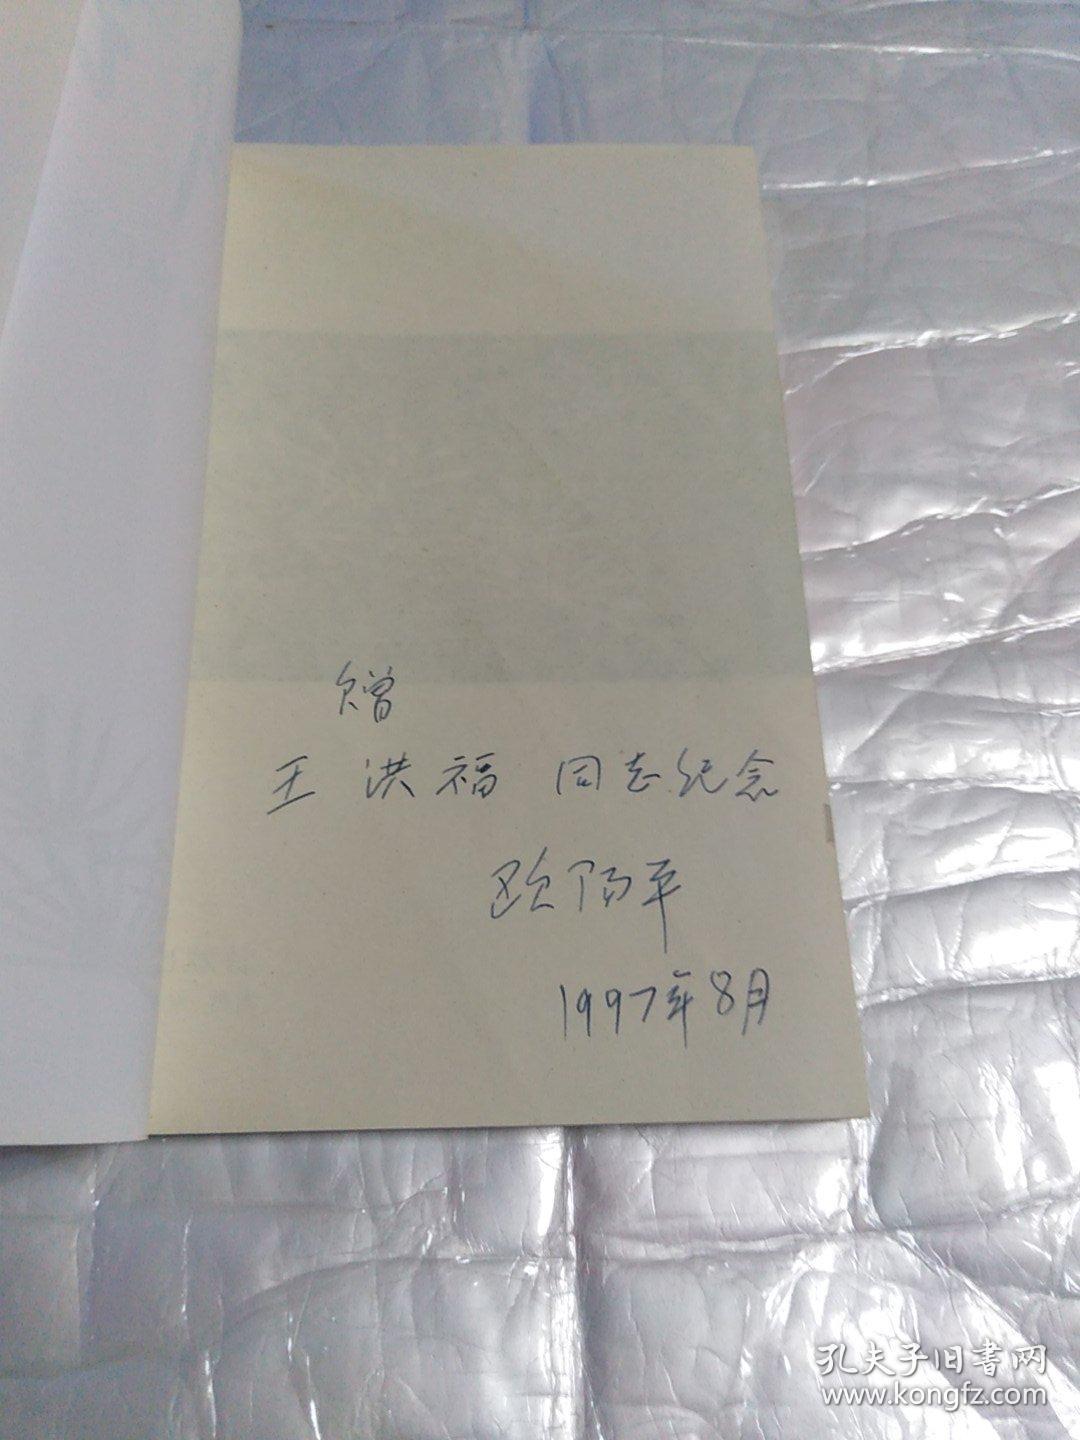 赠
王洪福 同志纪念
欧阳平
1997年8月
孔夫子旧書网
www.kongfz.com